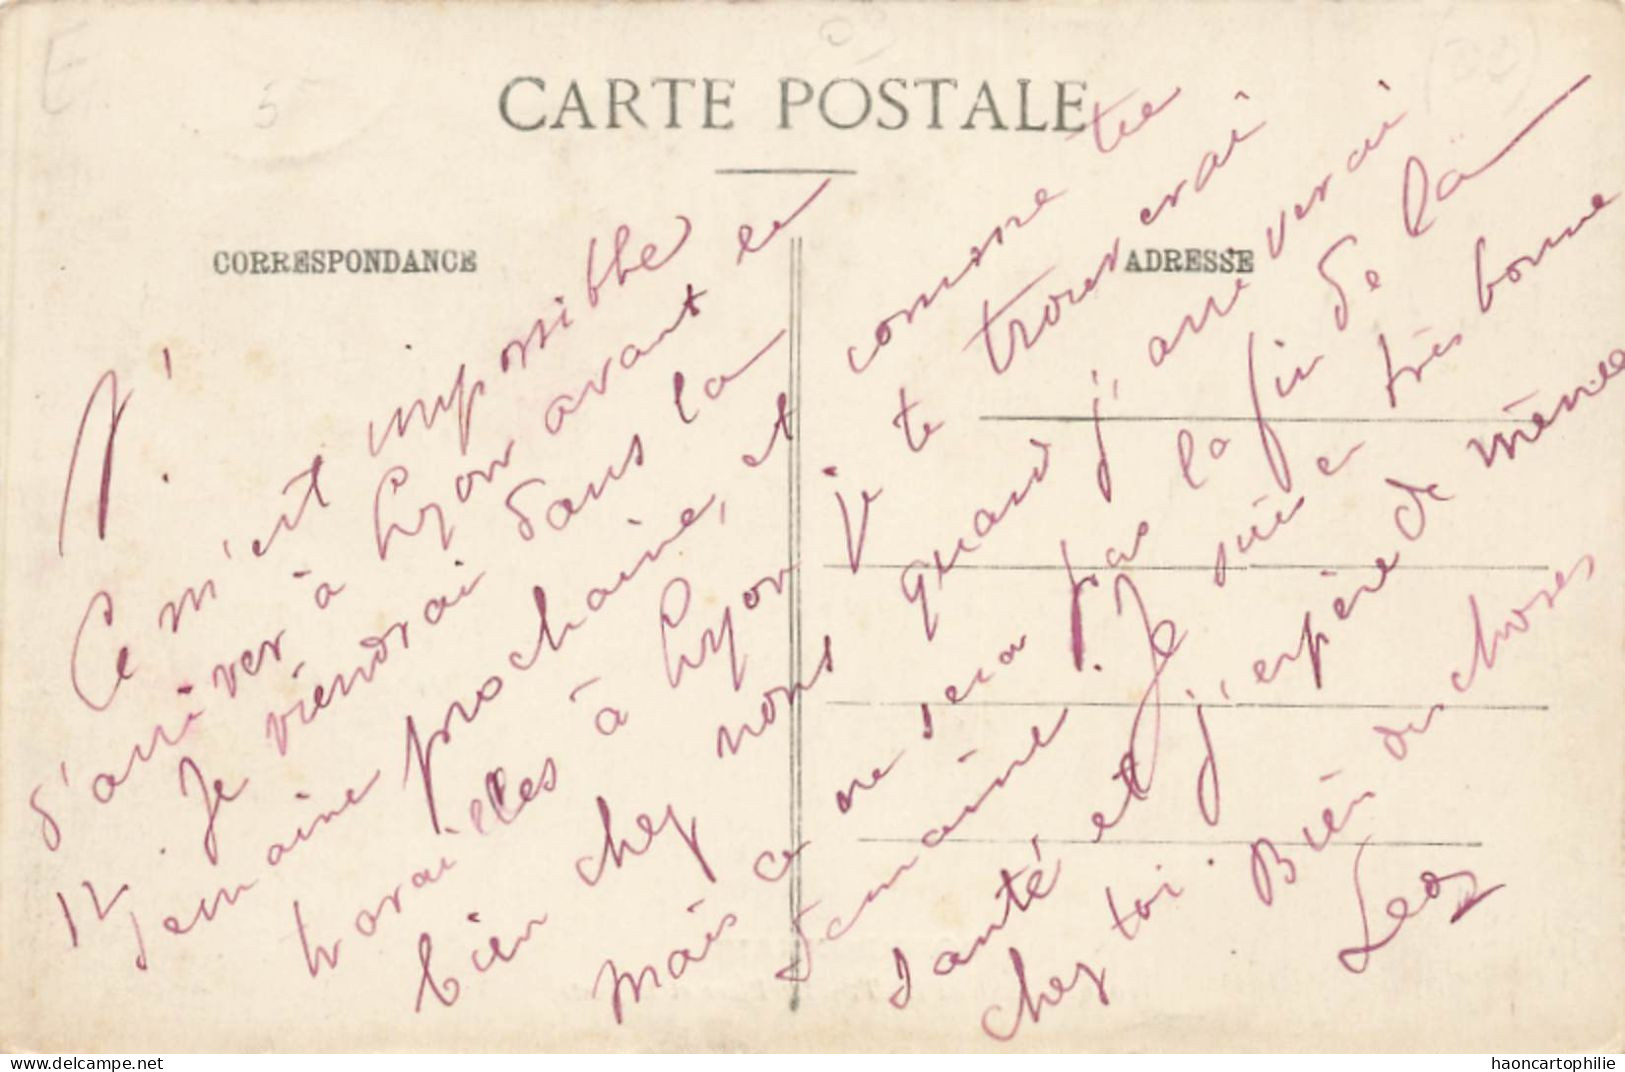 CARTE POSTALE
CORRESPONDANCE
ADRESSE
Ce m'est impossible
d'arriver à Lyon avant le
12. Je viendrai dans la
semaine prochaine, et comme tu
travailles à Lyon je te trouverai
bien chez nous quand j'arriverai
mais ce ne sera pas la fin de la
semaine. Je suis en très bonne
santé et j'espère de même
chez toi. Bien des choses
Leon
haoncartophilie
delcampe.net